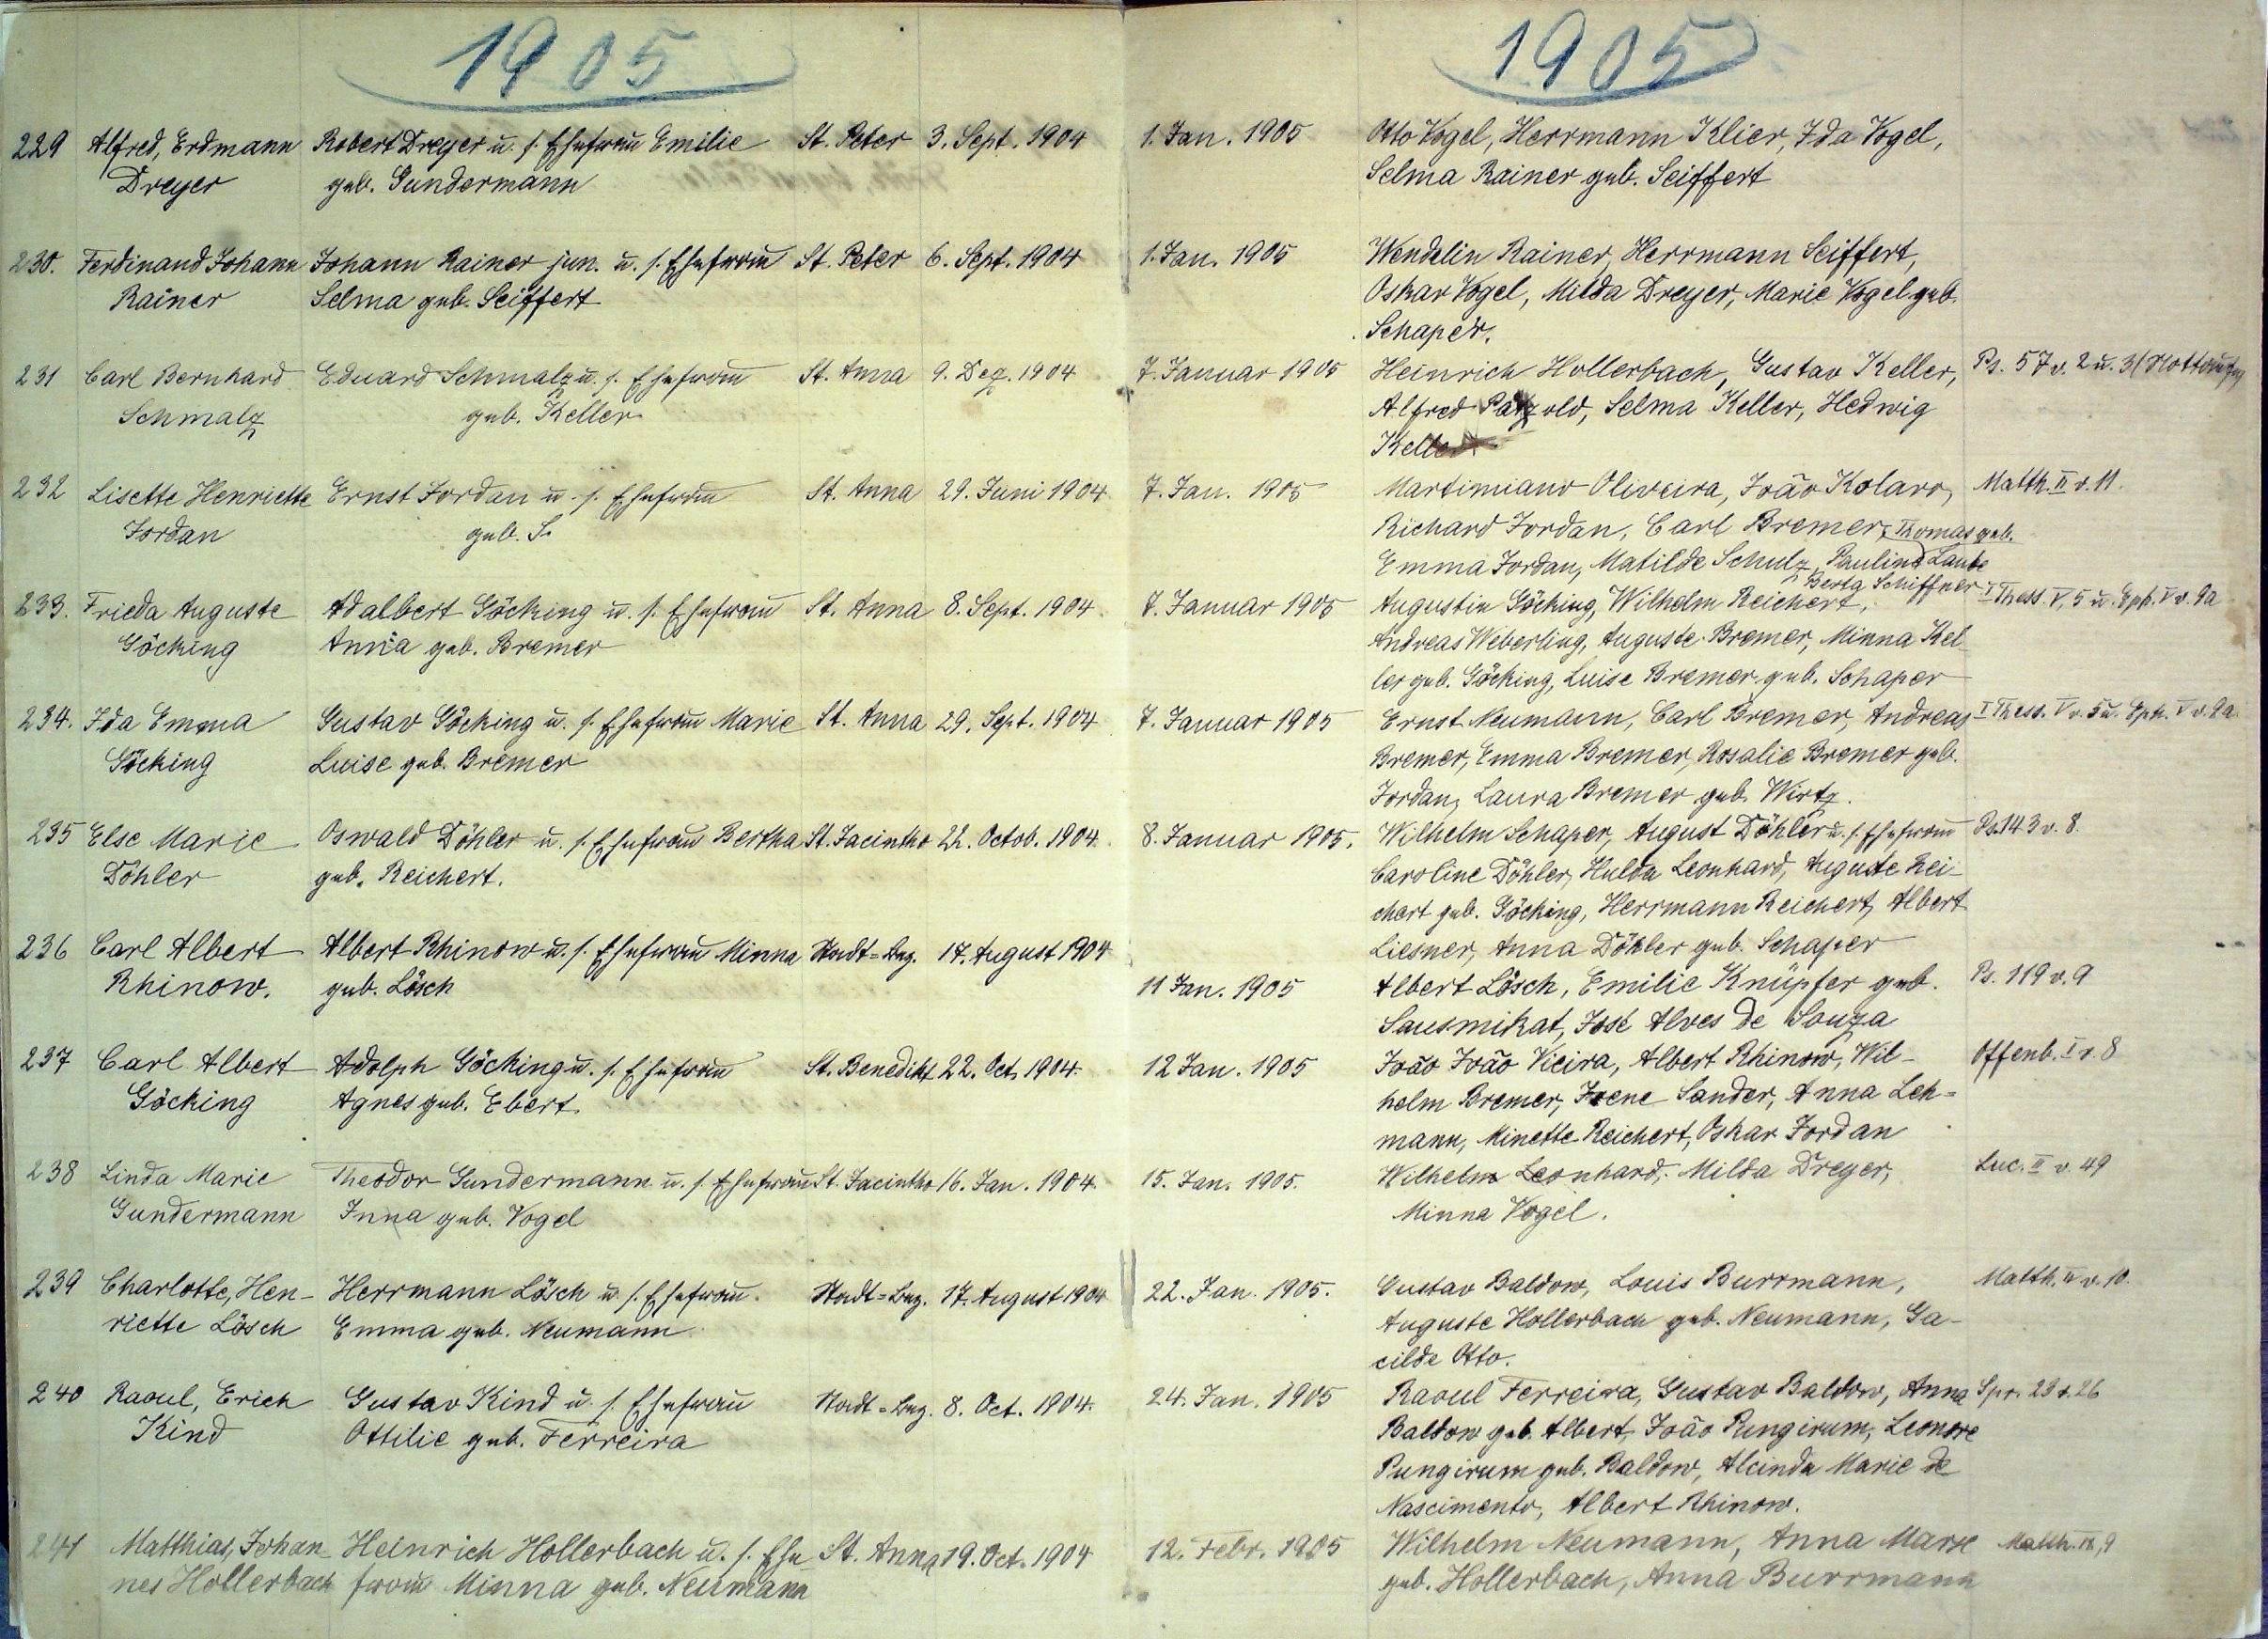 1905
229 Alfred, Erdmann Robert Dreyer u. s. Ehefrau Emilie St. Peter 3. Sept. 1904
Dreyer geb. Gundermann
230. Ferdinand Johann Johann Rainer jun. u. s. Ehefrau St. Peter 6. Sept. 1904
Rainer Selma geb. Seiffert
231 Carl Bernhard Eduard Schmalz u. s. Ehefrau St. Anna 9. Dez. 1904
Schmalz geb. Keller
232 Lisette Henriette Ernst Jordan u. s. Ehefrau St. Anna 29. Juni 1904
Jordan geb. S.
233. Frieda Auguste Adalbert Göcking u. s. Ehefrau St. Anna 8. Sept. 1904.
Göcking Anna geb. Bremer
234. Ida Emma Gustav Göcking u. s. Ehefrau Marie St. Anna 29. Sept. 1904
Göcking Luise geb. Bremer
235 Else Marie Oswald Döhler u. s. Ehefrau Bertha St. Jacintho 22. Octob. 1904.
Döhler geb. Reichert.
236 Carl Albert Albert Rhinow u. s. Ehefrau Minna Stadt-Bez. 17. August 1904
Rhinow. geb. Lösch
237 Carl Albert Adolph Göcking u. s. Ehefrau St. Benedikt 22. Oct. 1904.
Göcking Agnes geb. Ebert
238 Linda Marie Theodor Gundermann u. s. Ehefrau St. Jacintho 16. Jan. 1904.
Gundermann Inna geb. Vogel
239 Charlotte, Hen- Herrmann Lösch u. s. Ehefrau. Stadt=Bez. 17. August 1904
riette Lösch Emma geb. Neumann
240 Raoul, Erich Gustav Kind u. s. Ehefrau Stadt=Bez. 8. Oct. 1904.
Kind Ottilie geb. Ferreira
241 Matthias, Johan- Heinrich Hollerbach u. s. Ehe- St. Anna 19. Oct. 1904
nes Hollerbach frau Minna geb. Neumann
1905
1. Jan. 1905 Otto Vogel, Herrmann Klier, Ida Vogel,
Selma Rainer geb. Seiffert
1. Jan. 1905 Wendelin Rainer, Herrmann Seiffert,
Oskar Vogel, Milda Dreyer, Marie Vogel geb.
Schaper.
7. Januar 1905 Heinrich Hollerbach, Gustav Keller, Ps. 57 v. 2 u. 3
Alfred Patzold, Selma Keller, Hedwig
Keller.
7. Jan. 1905 Martimiano Oliveira, João Kolaro, Matth. II v. 11.
Richard Jordan, Carl Bremer, Thomas geb.
Emma Jordan, Matilde Schulz, Pauline Laube
Berta Schiffner
7. Januar 1905 Augustin Göcking, Wilhelm Reichert, I Thess. V, 5 u. Eph. V v. 9a
Andreas Weberling, Auguste Bremer, Minna Kel-
ler geb. Göcking, Luise Bremer geb. Schaper
7. Januar 1905 Ernst Neumann, Carl Bremer, Andreas I Thess. V v. 5 u. Eph. V v. 9a.
Bremer, Emma Bremer, Rosalie Bremer geb.
Jordan, Laura Bremer geb. Wirtz.
8. Januar 1905. Wilhelm Schaper, August Döhler u. s. Ehefrau Ps. 143 v. 8.
Caroline Döhler, Hulda Leonhard, Auguste Rei-
chert geb. Göcking, Herrmann Reichert, Albert
Liesner, Anna Döhler geb. Schaper
11 Jan. 1905 Albert Lösch, Emilie Knüpfer geb. Ps. 119 v. 9
Sausmikat, José Alves de Souza
12 Jan. 1905 João João Vieira, Albert Rhinow, Wil- Offenb. I v. 8
helm Bremer, Irene Sander, Anna Leh=
mann, Minette Reichert, Oskar Jordan
15. Jan. 1905. Wilhelm Leonhard, Milda Dreyer, Luc. II v. 49
Minna Vogel.
22. Jan. 1905. Gustav Baldow, Louis Burrmann, Matth. v. 10.
Auguste Hollerbach geb. Neumann, Ga-
cilde Otto.
24. Jan. 1905 Raoul Ferreira, Gustav Baldow, Anna Spr. 23 v. 26
Baldow geb. Albert, João Pungirum, Leonore
Pungirum geb. Baldow, Alcinda Marie de
Nascimento, Albert Rhinow.
12. Febr. 1905 Wilhelm Neumann, Anna Marx Matth. IX, 9
geb. Hollerbach, Anna Burrmann